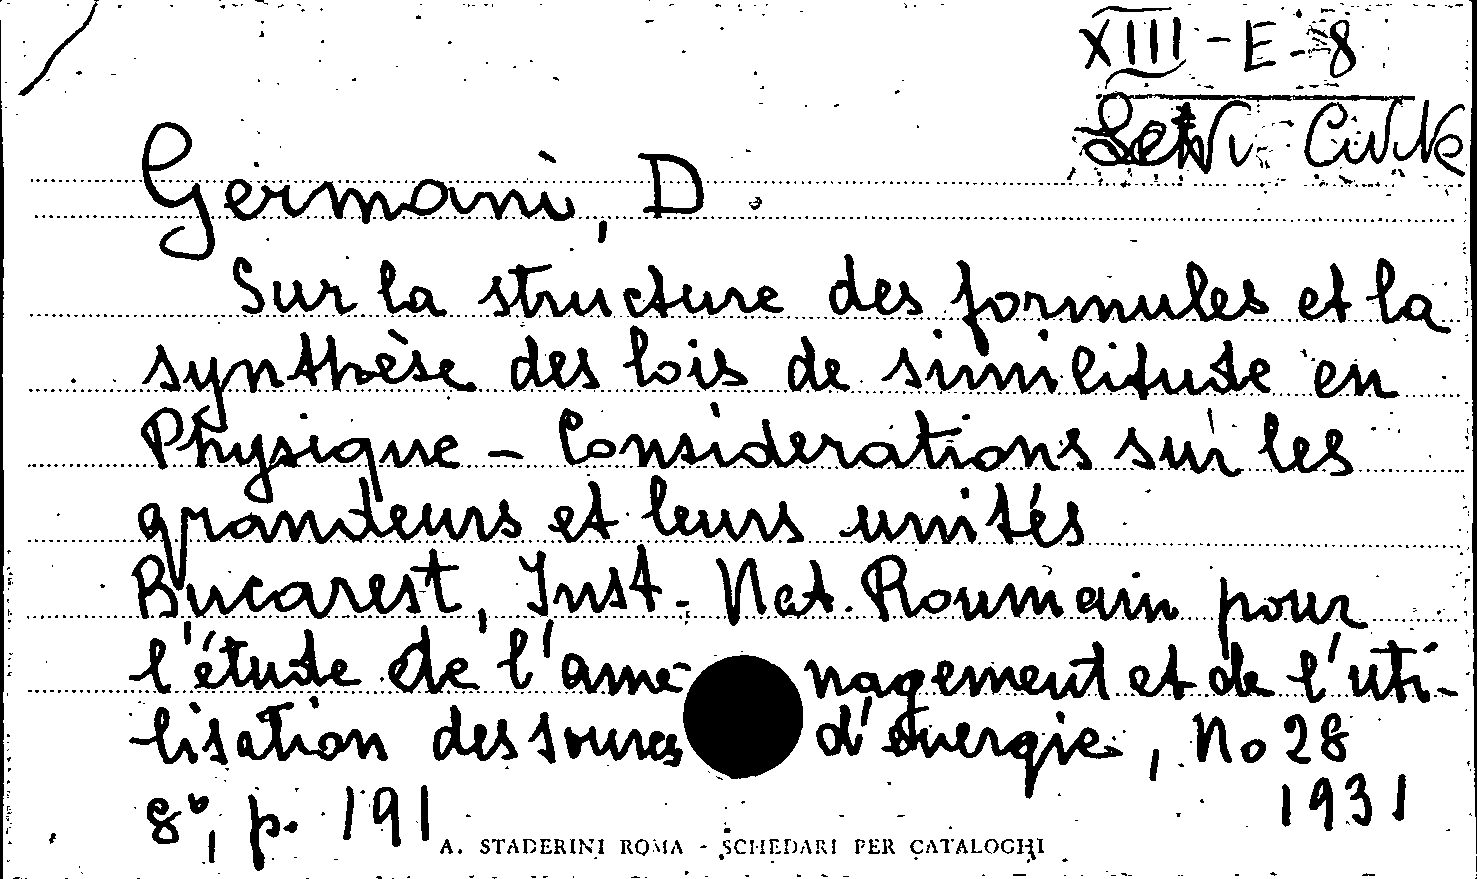 XIII - E - 8
Germani, D.
Sur la structure des formules et la
synthèse des lois de similitude en
Physique - Considerations sur les
grandeurs et leurs unités
Bucarest, Inst. Nat. Roumain pour
l'étude de l'amé- nagement et de l'uti-
lisation des sources d'énergie, No 28
8º, p. 191 1931
A. STADERINI ROMA - SCHEDARI PER CATALOGHI